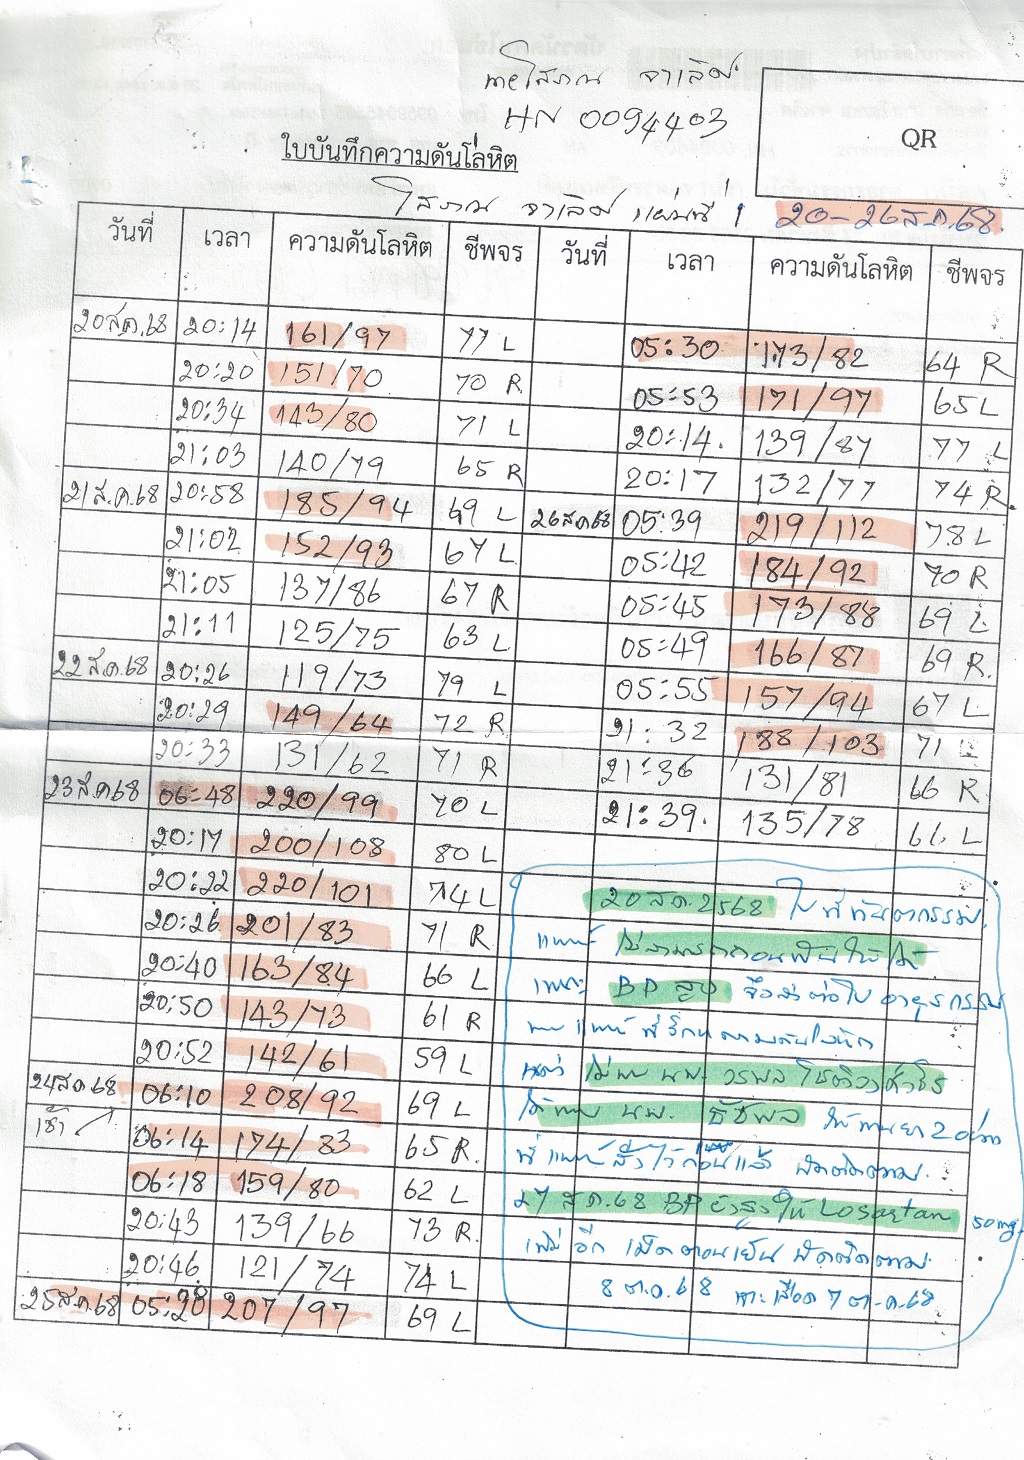 นายโสภณ จาเลิศ
HN 0094403
QR
ใบบันทึกความดันโลหิต
โสภณ จาเลิศ แผ่นที่ 1 20-26 ส.ค.68
วันที่ เวลา ความดันโลหิต ชีพจร วันที่ เวลา ความดันโลหิต ชีพจร
20 ส.ค.68 20:14 161/97 77 L
20:20 151/70 70 R
20:34 143/80 71 L
21:03 140/79 65 R
21 ส.ค.68 20:58 185/94 69 L
21:02 152/93 67 L
21:05 137/86 67 R
21:11 125/75 63 L
22 ส.ค.68 20:26 119/73 79 L
20:29 149/64 72 R
20:33 131/62 71 R
23 ส.ค 68 06:48 220/99 70 L
20:17 200/108 80 L
20:22 220/101 74 L
20:26 201/83 71 R
20:40 163/84 66 L
20:50 143/73 61 R
20:52 142/61 59 L
24 ส.ค.68 06:10 208/92 69 L
เช้า 06:14 174/83 65 R.
06:18 159/80 62 L
20:43 139/66 73 R.
20:46 121/74 74 L
25 ส.ค.68 05:28 207/97 69 L
05:30 173/82 64 R
05:53 171/97 65 L
20:14. 139/87 77 L
20:17 132/77 74 R.
26 ส.ค 68 05:39 219/112 78 L
05:42 184/92 70 R
05:45 173/88 69 L
05:49 166/87 69 R.
05:55 157/94 67 L
21:32 188/103 71 L
21:36 131/81 66 R
21:39. 135/78 66 L
20 ส.ค.2568 ไปที่ทันตกรรม
แพทย์ ไม่สามารถถอนฟันให้ได้
เพราะ BP สูง จึงส่งต่อไป อายุรกรรม
พบ แพทย์ ที่รักษา
แต่ว่า ไม่พบ นพ. วรพล
ได้พบ นพ. ธัชพล ให้ทานยา
ที่ แพทย์ สั่งไว้ก่อนแล้ว นัดติดตาม
27 ส.ค.68 BP ยังสูง ให้ Losartan 50mg.
เพิ่ม อีก เม็ด ตอนเย็น นัดติดตาม
8 ต.ค.68 เจาะเลือด 7 ต.ค.68